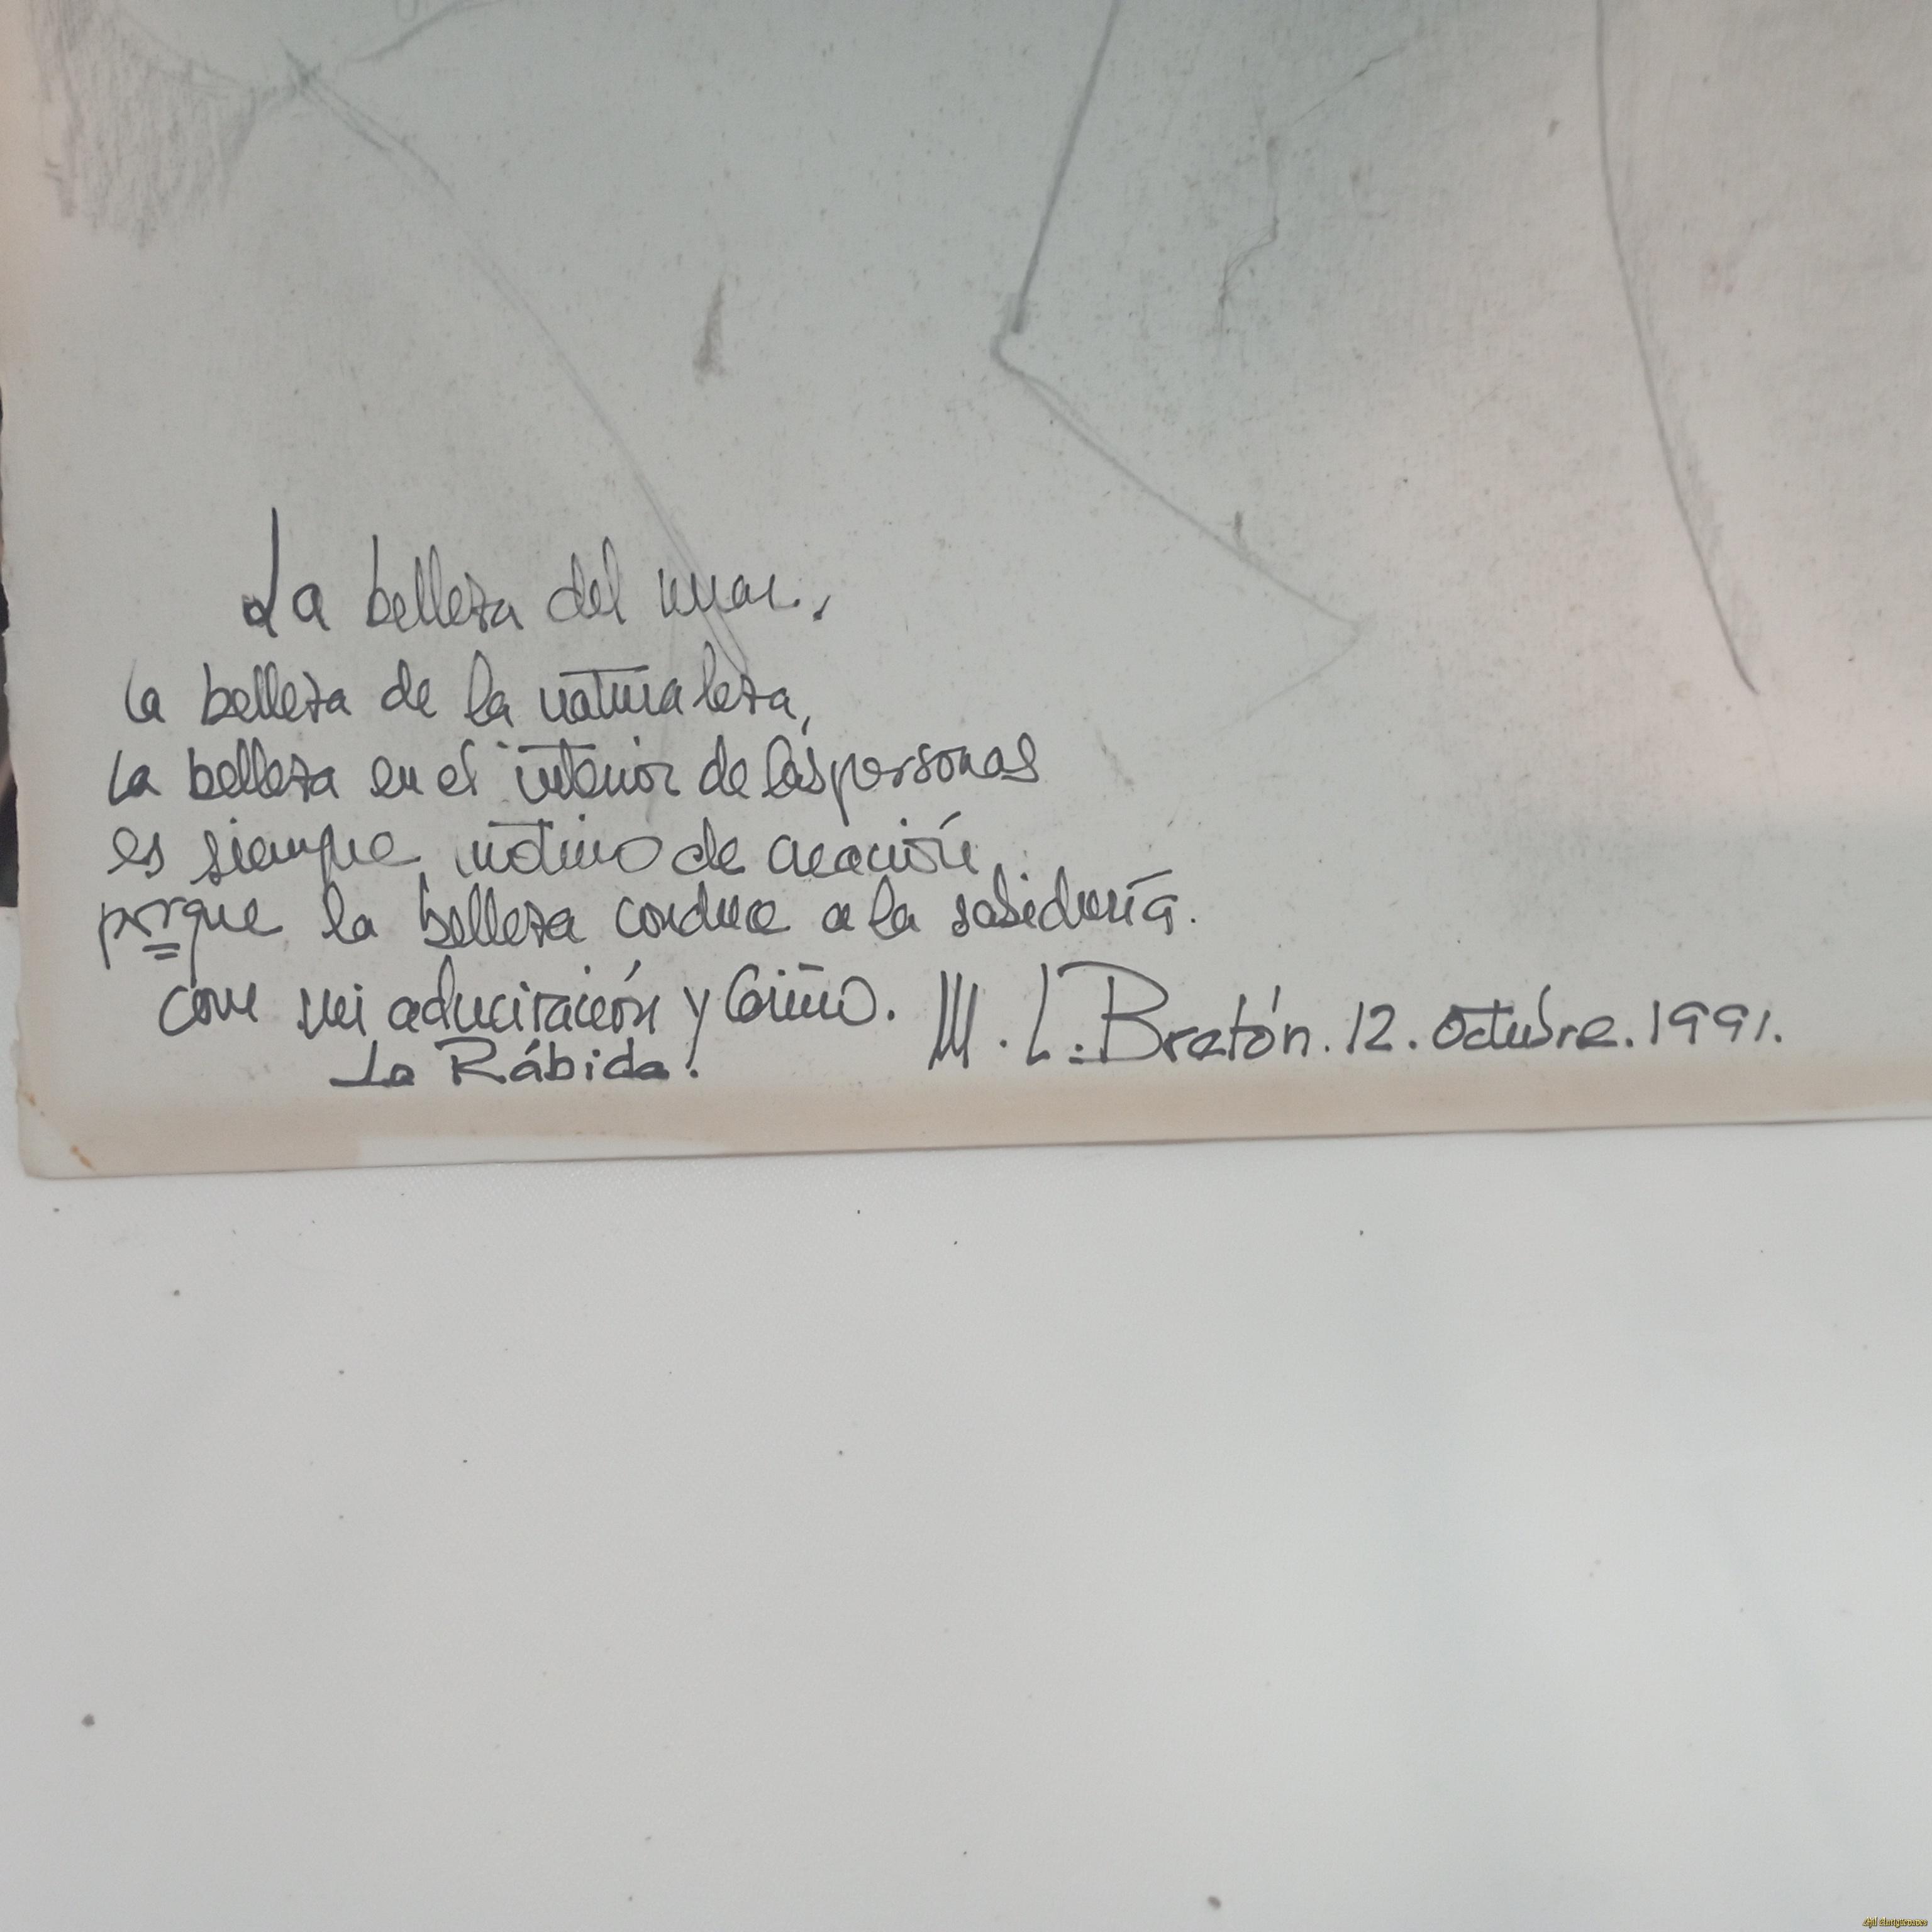 La belleza del mar,
la belleza de la naturaleza,
la belleza en el interior de las personas
es siempre motivo de creación
porque la belleza conduce a la sabiduría.
con mi admiración y cariño. M. L. Bretón. 12. Octubre. 1991.
La Rábida.